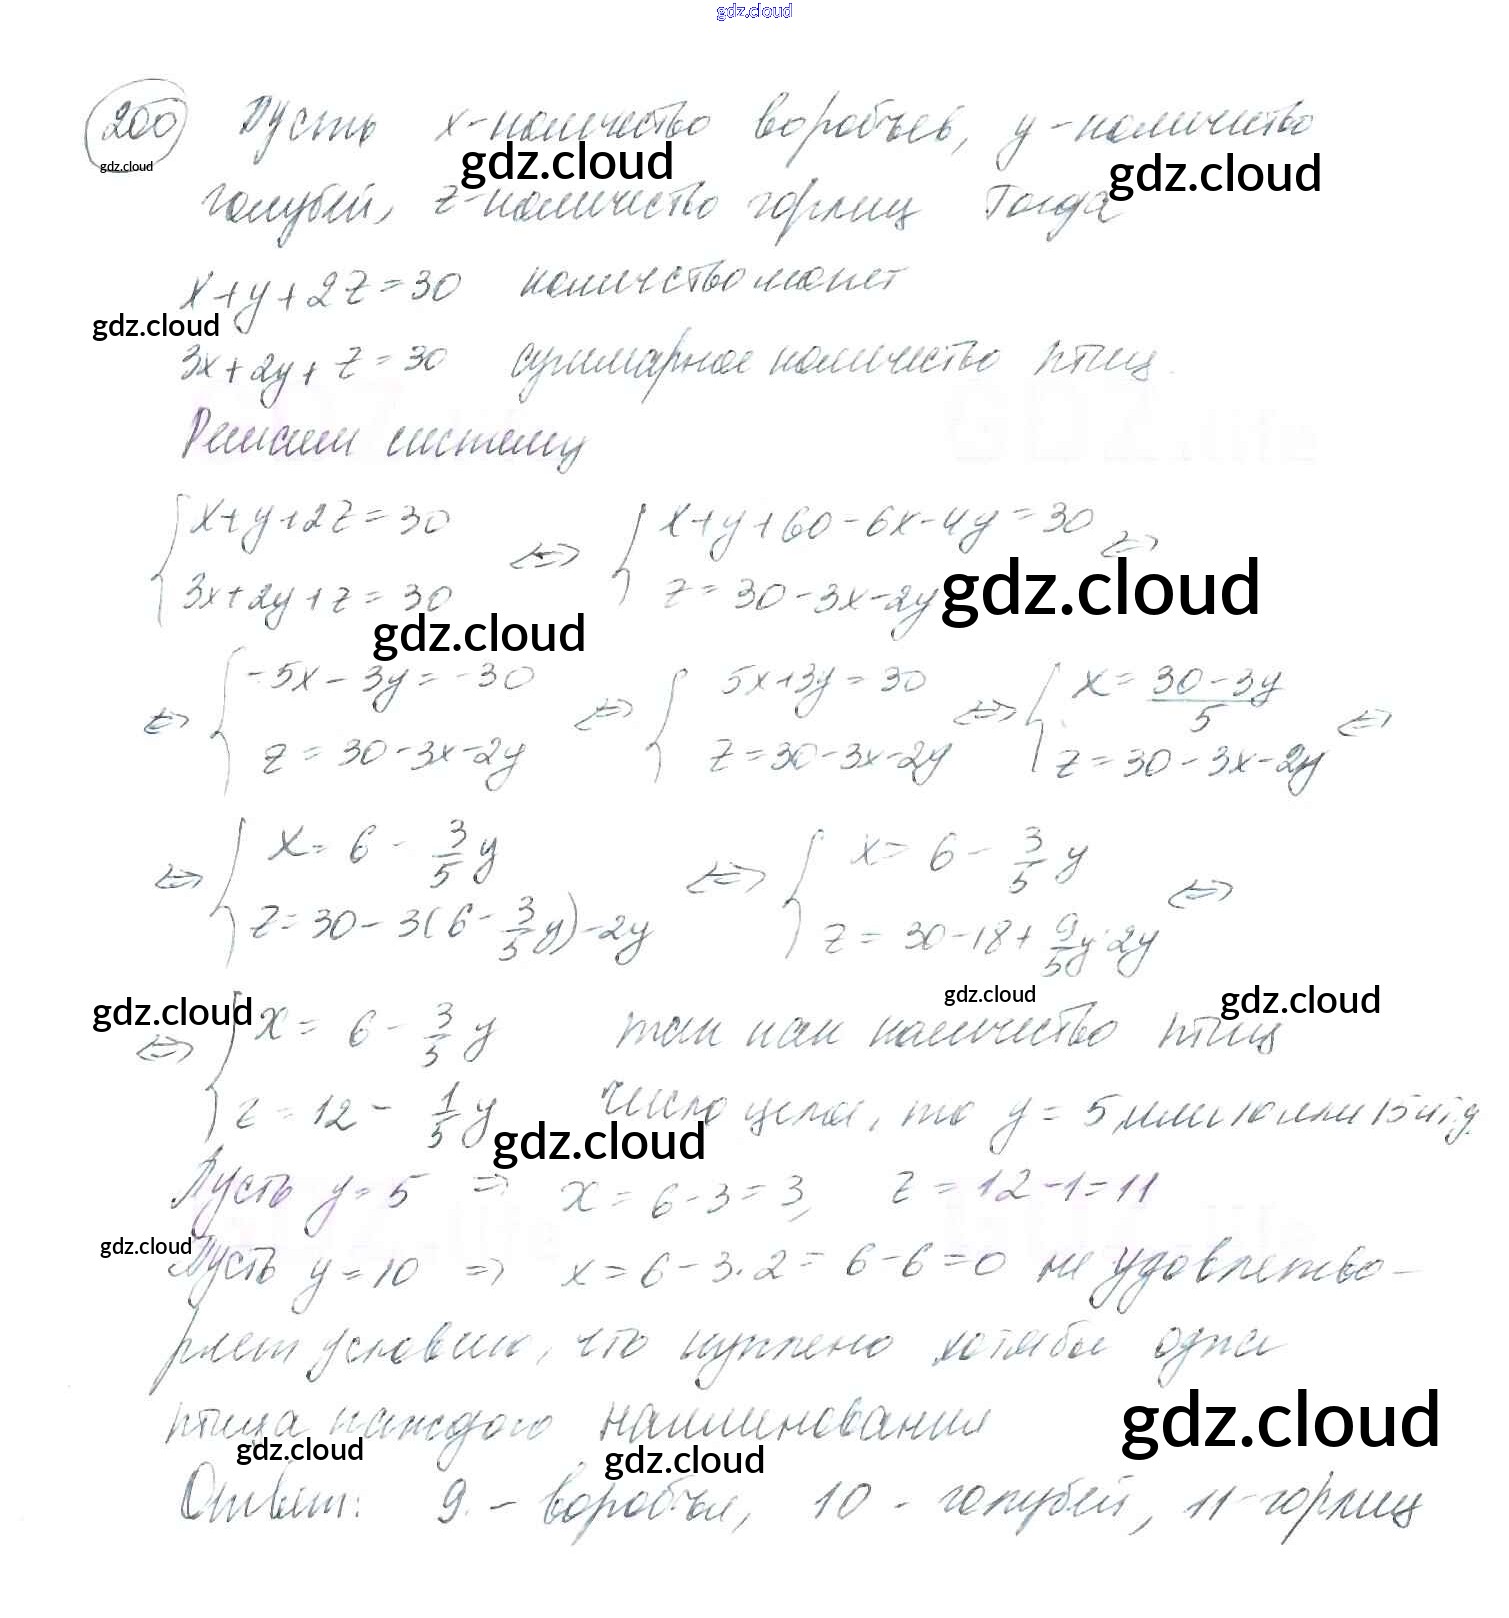 gdz.cloud
200 Пусть x-количество воробьев, y-количество
gdz.cloud
gdz.cloud
gdz.cloud
голубей, z-количество горлиц Тогда
x+y+2z=30 количество монет
gdz.cloud
3x+2y+z=30 суммарное количество птиц.
Решим систему
{x+y+2z=30 <=> {x+y+60-6x-4y=30 <=>
{3x+2y+z=30 {z=30-3x-2y
gdz.cloud
gdz.cloud
<=> {-5x-3y=-30 <=> {5x+3y=30 <=> {x=(30-3y)/5 <=>
{z=30-3x-2y {z=30-3x-2y {z=30-3x-2y
<=> {x=6-3/5y <=> {x=6-3/5y <=>
{z=30-3(6-3/5y)-2y {z=30-18+9/5y-2y
gdz.cloud
gdz.cloud
gdz.cloud
<=> {x=6-3/5y так как количество птиц
{z=12-1/5y число целое, то y=5 или 10 или 15 и т.д.
gdz.cloud
Пусть y=5 => x=6-3=3, z=12-1=11
gdz.cloud
Пусть y=10 => x=6-3·2=6-6=0 не удовлетво-
ряет условию, что куплено хотя бы одна
птица каждого наименования
gdz.cloud
gdz.cloud
gdz.cloud
Ответ: 9 - воробья, 10 - голубей, 11-горлиц